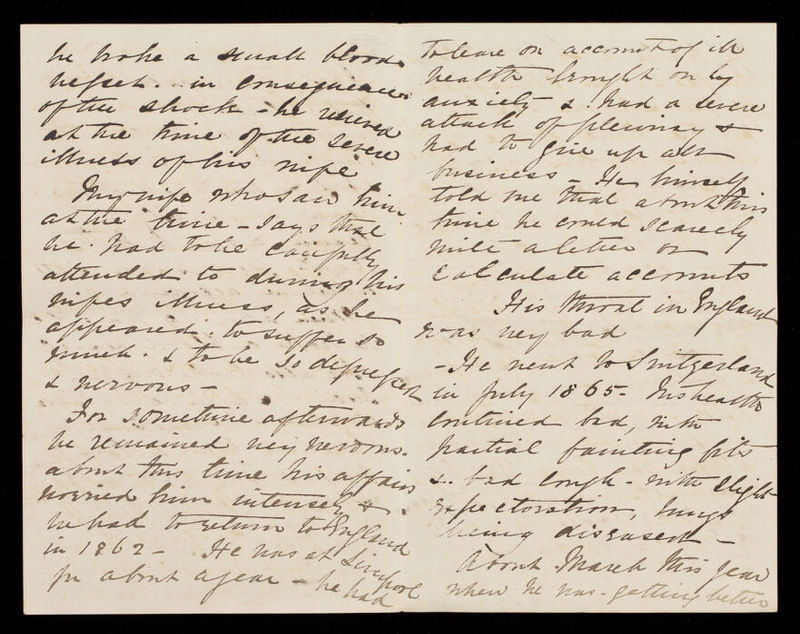 he broke a small blood
vessel. in consequence
of the shock - he received
at the time of the severe
illness of his wife
My wife who saw him
at the time - says that
he had to be carefully
attended to during his
wifes illness, as he
appeared to suffer so
much & to be so depressed
& nervous -
For sometime afterwards
he remained very nervous.
about this time his affairs
worried him intensely &
he had to return to England
in 1862 - He was at Liverpool
for about a year - he had
to leave on account of ill
health brought on by
anxiety & had a severe
attack of pleurisy &
had to give up all
business - He himself
told me that about this
time he could scarcely
write a letter or
calculate accounts
His throat in England
was very bad
- He went to Switzerland
in July 1865 - His health
continued bad, with
partial fainting fits
& bad cough - with slight
expectoration, lungs
being diseased -
About March this year
when he was getting better